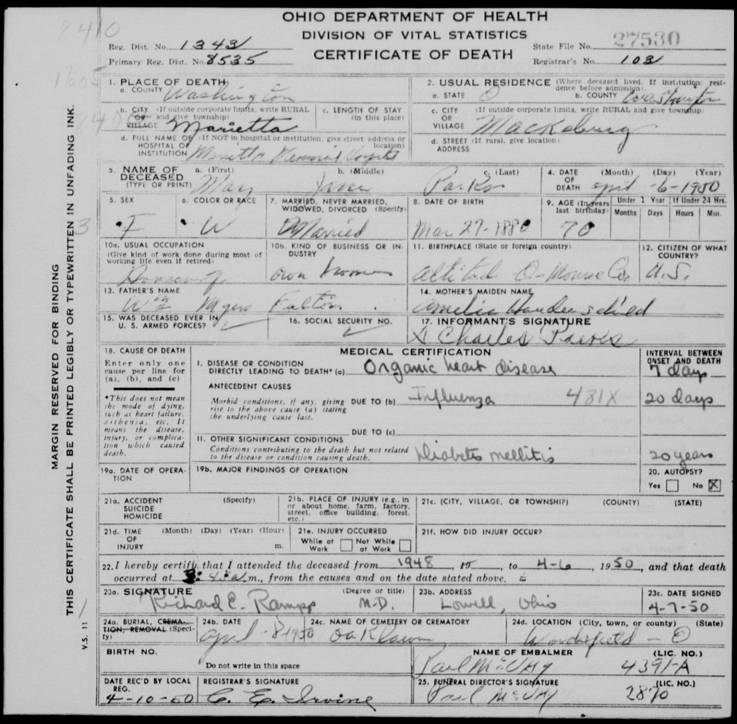 OHIO DEPARTMENT OF HEALTH
DIVISION OF VITAL STATISTICS
CERTIFICATE OF DEATH
Reg. Dist. No. 1343
Primary Reg. Dist. No. 8535
State File No. 27530
Registrar's No. 102
MARGIN RESERVED FOR BINDING
THIS CERTIFICATE SHALL BE PRINTED LEGIBLY OR TYPEWRITTEN IN UNFADING INK.
V.S. 11
1. PLACE OF DEATH
a. COUNTY Washington
2. USUAL RESIDENCE (Where deceased lived. If institution: residence before admission).
a. STATE O b. COUNTY Washington
b. CITY (If outside corporate limits, write RURAL and give township)
OR VILLAGE Marietta
c. LENGTH OF STAY (in this place)
c. CITY (If outside corporate limits, write RURAL and give township)
OR VILLAGE Macksburg
d. FULL NAME OF (If NOT in hospital or institution, give street address or location)
HOSPITAL OR INSTITUTION Marietta Memorial Hospital
d. STREET (If rural, give location)
ADDRESS
3. NAME OF DECEASED (TYPE OR PRINT)
a. (First) Mary b. (Middle) c. (Last)
4. DATE OF DEATH (Month) (Day) (Year)
April -6-1950
5. SEX F
6. COLOR OR RACE W
7. MARRIED, NEVER MARRIED, WIDOWED, DIVORCED (Specify) Married
8. DATE OF BIRTH Mar 27-1880
9. AGE (In years last birthday) 70
If Under 1 Year Months Days
If Under 24 Hrs. Hours Min.
10a. USUAL OCCUPATION (Give kind of work done during most of working life even if retired)
10b. KIND OF BUSINESS OR INDUSTRY own home
11. BIRTHPLACE (State or foreign country) O-Monroe Co.
12. CITIZEN OF WHAT COUNTRY? U.S.
13. FATHER'S NAME Wm Fulton
14. MOTHER'S MAIDEN NAME Amelia
15. WAS DECEASED EVER IN U. S. ARMED FORCES?
16. SOCIAL SECURITY NO.
17. INFORMANT'S SIGNATURE
Charles
18. CAUSE OF DEATH
Enter only one cause per line for (a), (b), and (c)
*This does not mean the mode of dying, such as heart failure, asthenia, etc. It means the disease, injury, or complication which caused death.
MEDICAL CERTIFICATION
INTERVAL BETWEEN ONSET AND DEATH
I. DISEASE OR CONDITION DIRECTLY LEADING TO DEATH* (a) Organic heart disease 7 days
ANTECEDENT CAUSES
Morbid conditions, if any, giving rise to the above cause (a) stating the underlying cause last.
DUE TO (b) Influenza 481X 20 days
DUE TO (c)
II. OTHER SIGNIFICANT CONDITIONS
Conditions contributing to the death but not related to the disease or condition causing death.
Diabetes mellitis 20 years
19a. DATE OF OPERATION
19b. MAJOR FINDINGS OF OPERATION
20. AUTOPSY?
Yes No X
21a. ACCIDENT SUICIDE HOMICIDE (Specify)
21b. PLACE OF INJURY (e.g., in or about home, farm, factory, street, office building, forest, etc.)
21c. (CITY, VILLAGE, OR TOWNSHIP) (COUNTY) (STATE)
21d. TIME OF INJURY (Month) (Day) (Year) (Hour) m.
21e. INJURY OCCURRED
While at Work Not While at Work
21f. HOW DID INJURY OCCUR?
22. I hereby certify that I attended the deceased from 1948, to 4-6, 1950, and that death
occurred at m., from the causes and on the date stated above.
23a. SIGNATURE (Degree or title)
Richard C. Rampp M.D.
23b. ADDRESS
Lowell, Ohio
23c. DATE SIGNED
4-7-50
24a. BURIAL, CREMATION, REMOVAL (Specify)
24b. DATE
April -8-1950
24c. NAME OF CEMETERY OR CREMATORY
Oaklawn
24d. LOCATION (City, town, or county) (State)
Woodsfield - O
BIRTH NO.
Do not write in this space
NAME OF EMBALMER (LIC. NO.)
Paul McVay 4391-A
DATE REC'D BY LOCAL REG.
4-10-50
REGISTRAR'S SIGNATURE
C. E. Irvine
25. FUNERAL DIRECTOR'S SIGNATURE (LIC. NO.)
Paul McVay 2870